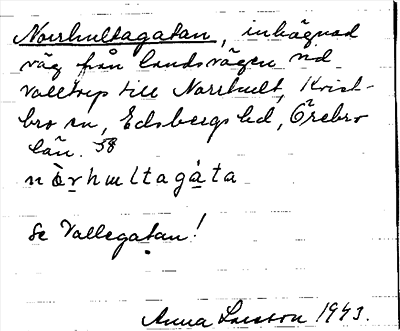 Norrhultagatan, inhägnad
väg från landsvägen vid
Valltorp till Norrhult, Kvist-
bro sn, Edsbergs hd, Örebro
län. 58
nò̱rhultagà̱ta
Se Vallegatan!
Anna Larsson 1943.